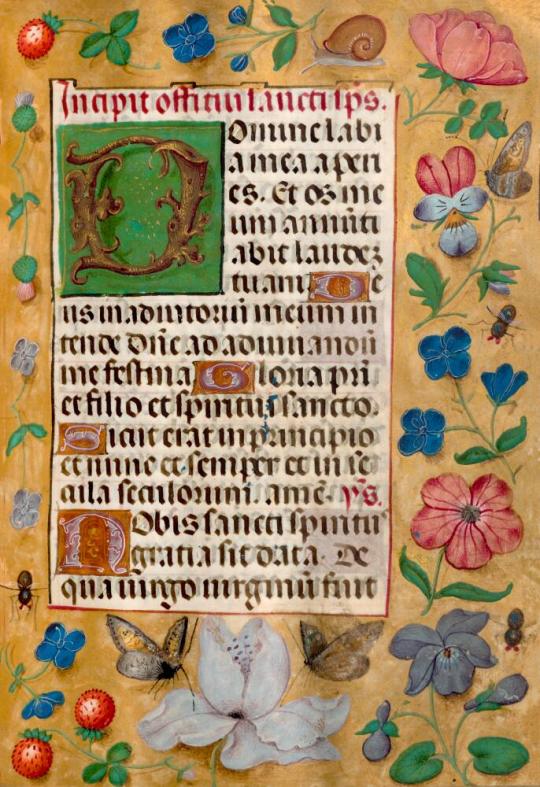 Incipit offitiu sancti sp̄s.
Domine labi
a mea aperi
es. Et os me
um annūti
abit laudeȝ
tuam. De
us in adiutoriū meum in
tende Dn̄e ad adiuuandū
me festina Gloria pr̄i
et filio et spiritui sancto.
Sicut erat in principio
et nunc et semper et in se
cula seculorum. amē. ps.
Nobis sancti spiritus
gratia sit data. De
qua uirgo uirginū fuit